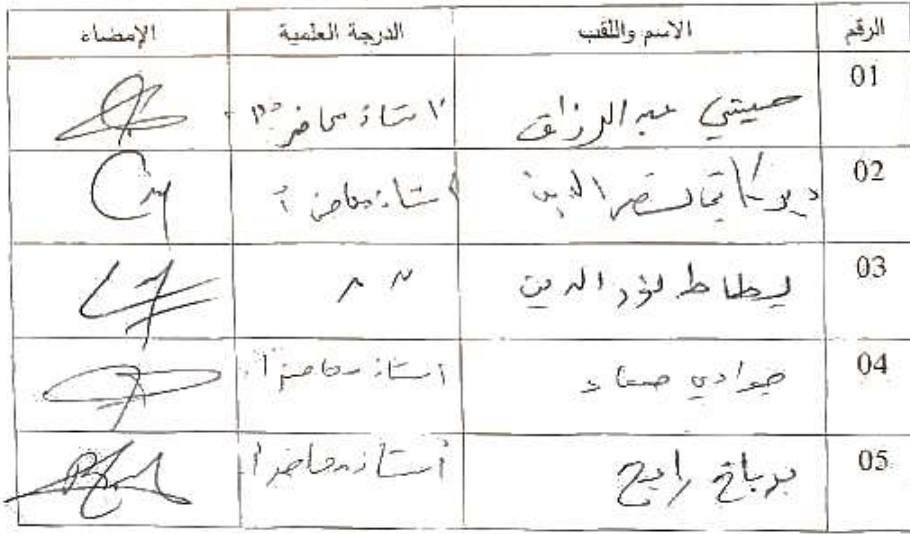 الرقم الاسم واللقب الدرجة العلمية الإمضاء
01 عبد الرزاق أستاذ محاضر
02 نصر الدين أستاذ محاضر أ
03 لطاط نور الدين " "
04 جوادي أستاذ محاضر أ
05 رابح أستاذ محاضر أ